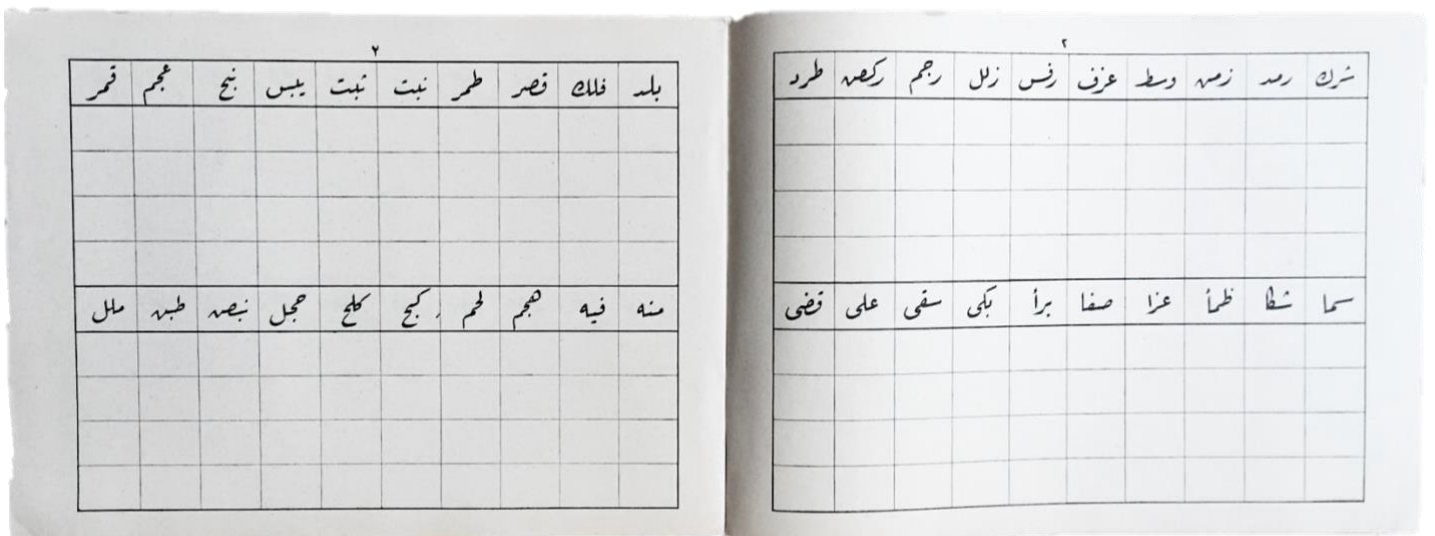 ٢
شرك رمد زمن وسط عزف رفس زلل رجم ركض طرد
سما شكا ظمأ عزا صفا برأ بكى سقى على قضى
٧
بلد فلك قصر طمر نبت ثبت يبس نبح عجم قمر
منه فيه هجم لحم كبح كلح حجل نبض طبن ملل